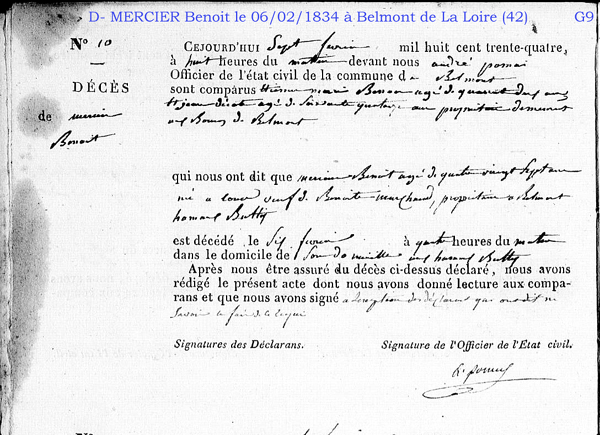 D- MERCIER Benoit le 06/02/1834 à Belmont de La Loire (42) G9
N° 10
DÉCÈS
de mercier
Benoit
CEJOURD'HUI Sept fevrier mil huit cent trente-quatre,
à huit heures du matin devant nous andré
Officier de l'état civil de la commune de Belmont
sont comparus agé de quarante ans
agé de soixante quatorze ans propriétaire demeurant
au Bourg de Belmont
qui nous ont dit que mercier Benoit agé de quatre vingt Sept ans
né a veuf de Benoite marchand, propriétaire a Belmont
hameau Butty
est décédé le Six fevrier à quatre heures du matin
dans le domicile de Son domicile hameau Butty
Après nous être assuré du décès ci-dessus déclaré, nous avons
rédigé le présent acte dont nous avons donné lecture aux compa-
rans et que nous avons signé a l'exception des déclarans qui ont dit ne
Savoir le faire de ce requi
Signatures des Déclarans. Signature de l'Officier de l'État civil.